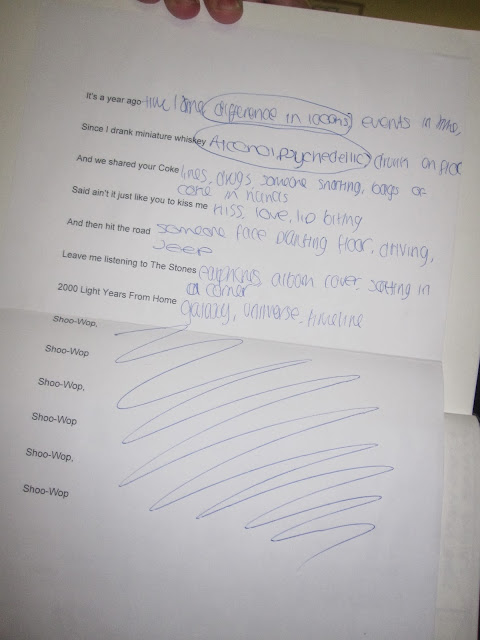 It's a year ago time line difference in icons, events in time,
Since I drank miniature whiskey Alcohol, psychedelic, drunk on floor
And we shared your Coke lines, drugs, someone snorting, bags of
coke in hands
Said ain't it just like you to kiss me kiss, love, lip biting
And then hit the road someone face planting floor, driving,
Jeep
Leave me listening to The Stones earphones, album cover, sitting in
a corner
2000 Light Years From Home galaxy, universe, timeline
Shoo-Wop,
Shoo-Wop
Shoo-Wop,
Shoo-Wop
Shoo-Wop,
Shoo-Wop